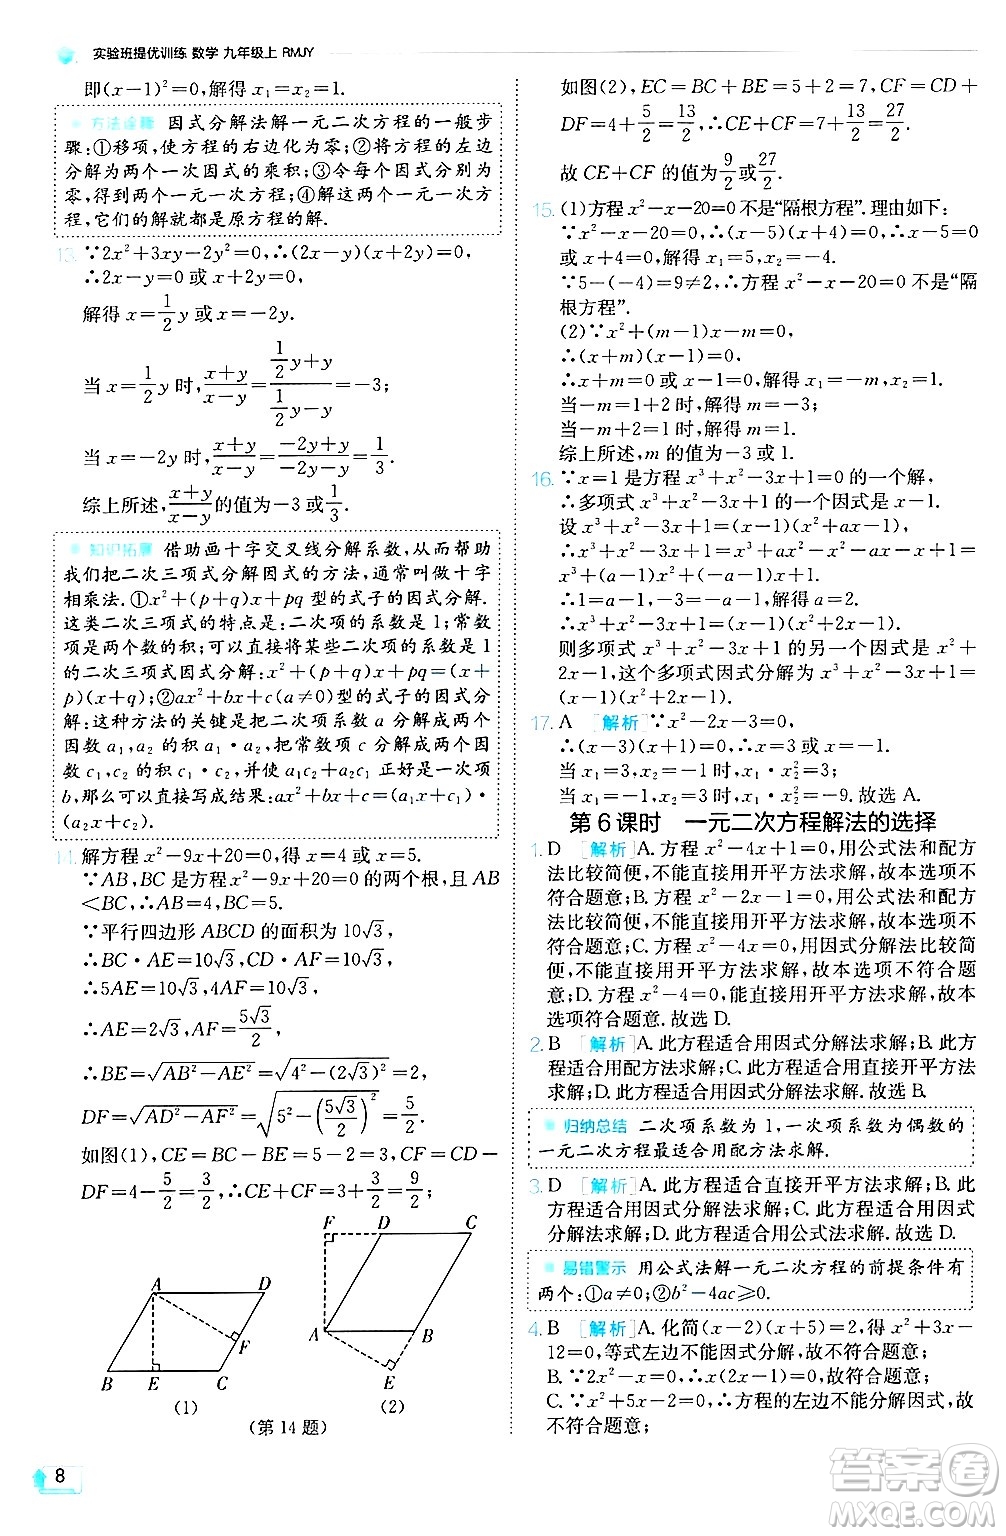 实验班提优训练 数学 九年级上 RMJY
即(x－1)²＝0,解得 x₁＝x₂＝1.
方法诠释 因式分解法解一元二次方程的一般步
骤:①移项,使方程的右边化为零;②将方程的左边
分解为两个一次因式的乘积;③令每个因式分别为
零,得到两个一元一次方程;④解这两个一元一次方
程,它们的解就都是原方程的解.
13. ∵2x²＋3xy－2y²＝0,∴(2x－y)(x＋2y)＝0,
∴2x－y＝0 或 x＋2y＝0,
解得 x＝1/2 y 或 x＝－2y.
当 x＝1/2 y 时,(x＋y)/(x－y)＝(1/2 y＋y)/(1/2 y－y)＝－3;
当 x＝－2y 时,(x＋y)/(x－y)＝(－2y＋y)/(－2y－y)＝1/3.
综上所述,(x＋y)/(x－y)的值为－3 或 1/3.
知识拓展 借助画十字交叉线分解系数,从而帮助
我们把二次三项式分解因式的方法,通常叫做十字
相乘法.①x²＋(p＋q)x＋pq 型的式子的因式分解.
这类二次三项式的特点是:二次项的系数是 1;常数
项是两个数的积;可以直接将某些二次项的系数是 1
的二次三项式因式分解:x²＋(p＋q)x＋pq＝(x＋
p)(x＋q);②ax²＋bx＋c(a≠0)型的式子的因式分
解:这种方法的关键是把二次项系数 a 分解成两个
因数 a₁,a₂ 的积 a₁·a₂,把常数项 c 分解成两个因
数 c₁,c₂ 的积 c₁·c₂,并使 a₁c₂＋a₂c₁ 正好是一次项
b,那么可以直接写成结果:ax²＋bx＋c＝(a₁x＋c₁)·
(a₂x＋c₂).
14. 解方程 x²－9x＋20＝0,得 x＝4 或 x＝5.
∵AB,BC 是方程 x²－9x＋20＝0 的两个根,且 AB
＜BC,∴AB＝4,BC＝5.
∵平行四边形 ABCD 的面积为 10√3,
∴BC·AE＝10√3,CD·AF＝10√3,
∴5AE＝10√3,4AF＝10√3,
∴AE＝2√3,AF＝5√3/2,
∴BE＝√(AB²－AE²)＝√(4²－(2√3)²)＝2,
DF＝√(AD²－AF²)＝√(5²－(5√3/2)²)＝5/2.
如图(1),CE＝BC－BE＝5－2＝3,CF＝CD－
DF＝4－5/2＝3/2,∴CE＋CF＝3＋3/2＝9/2;
A D F B E C
(1)
F D C A B E
(2)
(第 14 题)
8
如图(2),EC＝BC＋BE＝5＋2＝7,CF＝CD＋
DF＝4＋5/2＝13/2,∴CE＋CF＝7＋13/2＝27/2.
故 CE＋CF 的值为9/2或27/2.
15. (1)方程 x²－x－20＝0 不是“隔根方程”.理由如下:
∵x²－x－20＝0,∴(x－5)(x＋4)＝0,∴x－5＝0
或 x＋4＝0,解得 x₁＝5,x₂＝－4.
∵5－(－4)＝9≠2,∴方程 x²－x－20＝0 不是“隔
根方程”.
(2)∵x²＋(m－1)x－m＝0,
∴(x＋m)(x－1)＝0,
∴x＋m＝0 或 x－1＝0,解得 x₁＝－m,x₂＝1.
当－m＝1＋2 时,解得 m＝－3;
当－m＋2＝1 时,解得 m＝1.
综上所述,m 的值为－3 或 1.
16. ∵x＝1 是方程 x³＋x²－3x＋1＝0 的一个解,
∴多项式 x³＋x²－3x＋1 的一个因式是 x－1.
设 x³＋x²－3x＋1＝(x－1)(x²＋ax－1)＝
x³＋(a－1)x²－(1＋a)x＋1,
∴1＝a－1,－3＝－(1＋a),解得 a＝2.
∴x³＋x²－3x＋1＝(x－1)(x²＋2x－1),
则多项式 x³＋x²－3x＋1 的另一个因式是 x²＋
2x－1,∴这个多项式因式分解为 x³＋x²－3x＋
1＝(x－1)(x²＋2x－1).
17. A [解析]∵x²－2x－3＝0,
∴(x－3)(x＋1)＝0,∴x＝3 或 x＝－1.
当 x₁＝3,x₂＝－1 时,x₁·x₂²＝3;
当 x₁＝－1,x₂＝3 时,x₁·x₂²＝－9.故选 A.
第 6 课时 一元二次方程解法的选择
1. D [解析]A. 方程 x²－4x＋1＝0,用公式法和配方
法比较简便,不能直接用开平方法求解,故本选项不
符合题意;B. 方程 x²－2x－1＝0,用公式法和配方
法比较简便,不能直接用开平方法求解,故本选项不
符合题意;C. 方程 x²－4x＝0,用因式分解法比较简
便,不能直接用开平方法求解,故本选项不符合题
意;D. 方程 x²－4＝0,能直接用开平方法求解,故本
选项符合题意.故选 D.
2. B [解析]A. 此方程适合用因式分解法求解;B. 此
方程适合用配方法求解;C. 此方程适合用直接开平方
法求解;D. 此方程适合用因式分解法求解.故选 B.
归纳总结 二次项系数为 1,一次项系数为偶数的
一元二次方程最适合用配方法求解.
3. D [解析]A. 此方程适合直接开平方法求解;B. 此
方程适合用配方法求解;C. 此方程适合用因式分解
法求解;D. 此方程适合用公式法求解.故选 D.
易错警示 用公式法解一元二次方程的前提条件有
两个:①a≠0;②b²－4ac≥0.
4. B [解析]A. 化简(x－2)(x＋5)＝2,得 x²＋3x－
12＝0,等式左边不能因式分解,故不符合题意;
B. ∵2x²－x＝0,∴x(2x－1)＝0,故符合题意;
C. ∵x²＋5x－2＝0,∴方程的左边不能分解因式,故
不符合题意;
答案圈
MXQE.COM